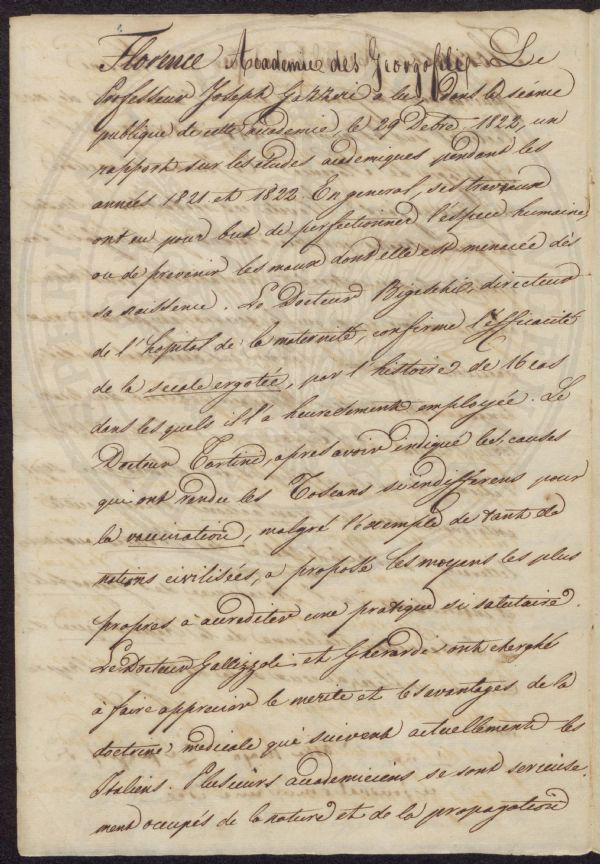 Florence Academie des Georgofiles Le
Professeur Joseph Gazzeri a lu, dans la séance
publique de cette académie, le 29 Debre 1822, un
rapport sur les études académiques pendant les
années 1821 et 1822. En general, ses travaux
ont eu pour but de perfectionner l'éspece humaine
ou de prevenir les maux dont elle est menacée dès
sa naissence. Le Docteur Bigeschi, directeur
de l'hopital de la maternité, confirme l'Efficacité
de la secale ergotée, par l'histoire de 16 cas
dans lesquels il l'a heureusement employée. Le
Docteur Tartini, apres avoir indiqué les causes
qui ont rendu les Toscans si indifferens pour
la vaccination, malgré l'exemple de tant de
nations civilisées, a proposé les moyens les plus
propres à accrediter une pratique si salutaire.
Le Docteur Gallizzoli et Gherardi ont cherché
à faire apprecier le merite et les avantages de la
doctrine médicale que suivent actuellement les
Italiens. Plusieurs academiciens se sont serieuse-
ment occupés de la nature et de la propagation